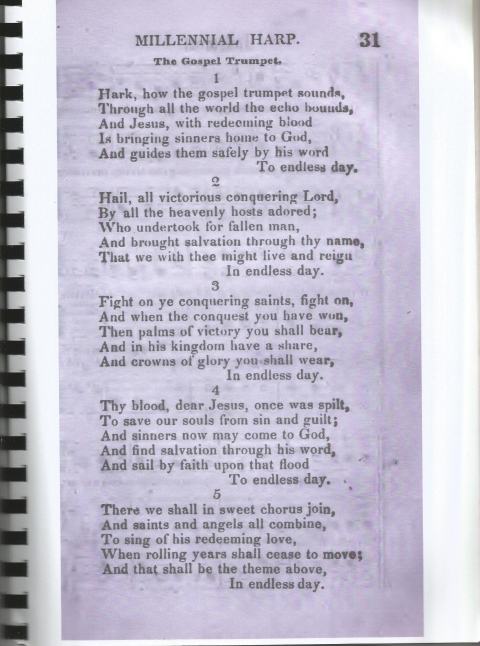 MILLENNIAL HARP. 31
The Gospel Trumpet.
1
Hark, how the gospel trumpet sounds,
Through all the world the echo bounds,
And Jesus, with redeeming blood
Is bringing sinners home to God,
And guides them safely by his word
To endless day.
2
Hail, all victorious conquering Lord,
By all the heavenly hosts adored;
Who undertook for fallen man,
And brought salvation through thy name,
That we with thee might live and reign
In endless day.
3
Fight on ye conquering saints, fight on,
And when the conquest you have won,
Then palms of victory you shall bear,
And in his kingdom have a share,
And crowns of glory you shall wear,
In endless day.
4
Thy blood, dear Jesus, once was spilt,
To save our souls from sin and guilt;
And sinners now may come to God,
And find salvation through his word,
And sail by faith upon that flood
To endless day.
5
There we shall in sweet chorus join,
And saints and angels all combine,
To sing of his redeeming love,
When rolling years shall cease to move;
And that shall be the theme above,
In endless day.